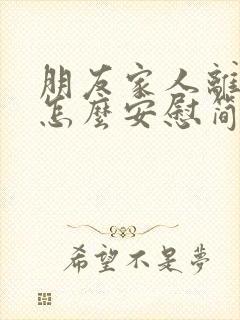 朋友家人離
怎麼安慰简
希望不是夢